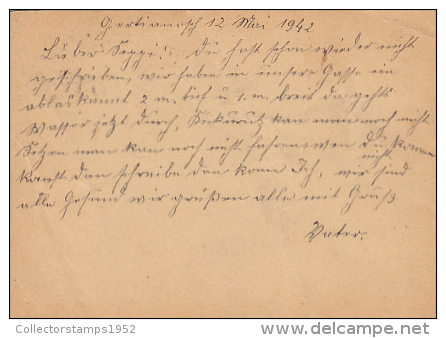 Gertianosch 12 Mai 1942
Lieber Seppi! Du hast schon wieder nicht
geschrieben, wir haben in unsere Gasse ein
ablaskanal 2 m. tief u 1. m. breit da gehts
Wasser jetzt durch, Kukurutz kan man noch nicht
Setzen man kan noch nicht fahren wen du nicht komen
kanst dan schreibe dan kome Ich, wir sind
alle Gesund wir grüßen alle mit Gruß
Vater.
Collectorstamps1952
delcampe.net